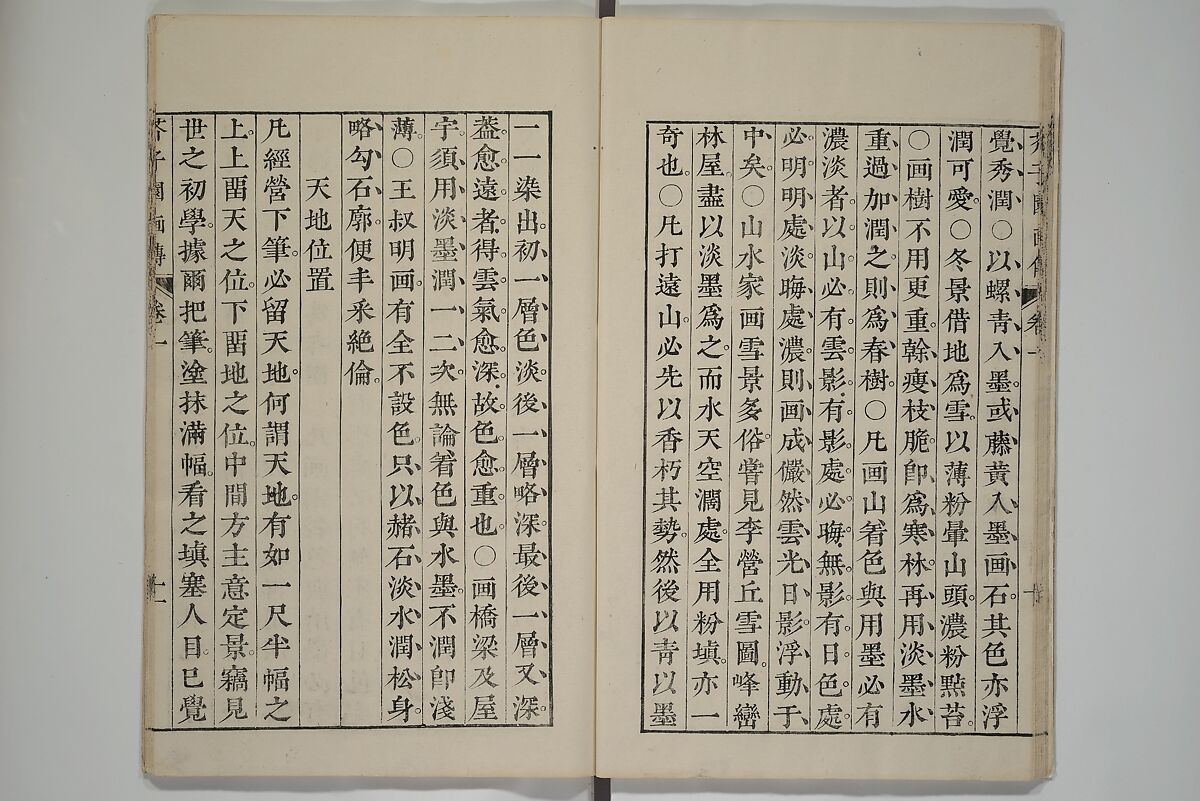 芥子園畫傳
卷一
十
覺秀潤○以螺青入墨或藤黃入墨画石其色亦浮
潤可愛○冬景借地爲雪以薄粉暈山頭濃粉㸃苔
○画樹不用更重幹瘦枝脆卽爲寒林再用淡墨水
重過加潤之則爲春樹○凡画山着色與用墨必有
濃淡者以山必有雲影有影處必晦無影有日色處
必明明處淡晦處濃則画成儼然雲光日影浮動于
中矣○山水家画雪景多俗嘗見李營丘雪圖峰巒
林屋盡以淡墨爲之而水天空濶處全用粉塡亦一
奇也○凡打遠山必先以香朽其勢然後以靑以墨
一一染出初一層色淡後一層略深最後一層又深
葢愈遠者得雲氣愈深故色愈重也○画橋梁及屋
宇須用淡墨潤一二次無論着色與水墨不潤卽淺
薄○王叔明画有全不設色只以赭石淡水潤松身
略勾石廓便丰采絶倫
天地位置
凡經營下筆必留天地何謂天地有如一尺半幅之
上上畱天之位下畱地之位中間方主意定景竊見
世之初學據爾把筆塗抹滿幅看之塡塞人目已覺
芥子園画傳
卷一
十一